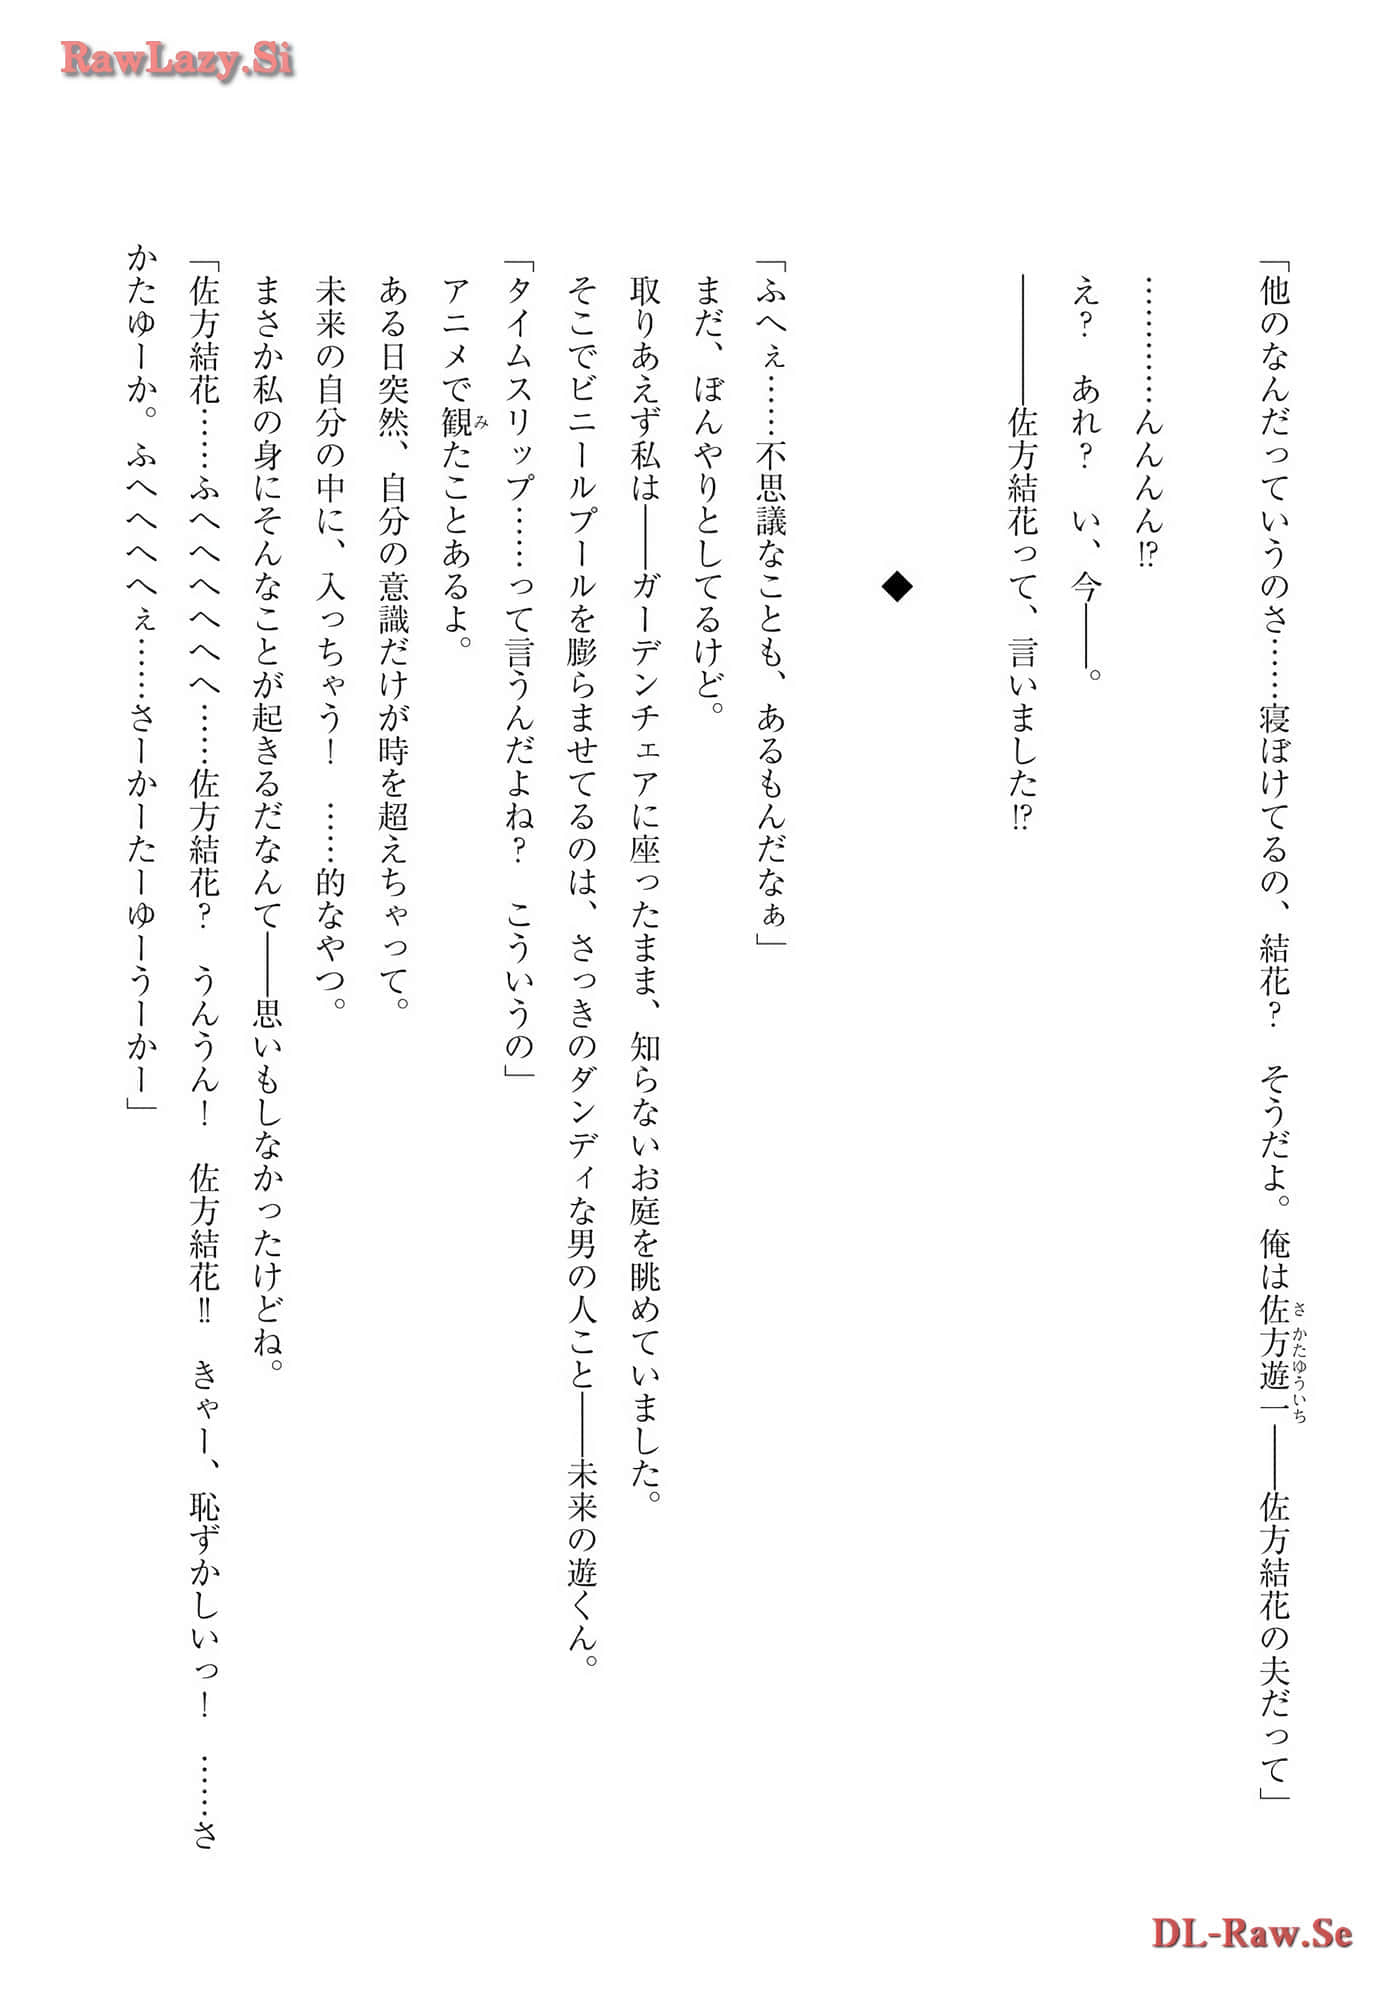 RawLazy.Si
「他のなんだっていうのさ……寝ぼけてるの、結花？　そうだよ。俺は佐方遊一――佐方結花の夫だって」
さかたゆういち
…………んんんん!?
え？　あれ？　い、今――。
――――佐方結花って、言いました!?
◆
「ふへぇ……不思議なことも、あるもんだなぁ」
まだ、ぼんやりとしてるけど。
取りあえず私は――ガーデンチェアに座ったまま、知らないお庭を眺めていました。
そこでビニールプールを膨らませてるのは、さっきのダンディな男の人こと――未来の遊くん。
「タイムスリップ……って言うんだよね？　こういうの」
アニメで観たことあるよ。
み
ある日突然、自分の意識だけが時を超えちゃって。
未来の自分の中に、入っちゃう！　……的なやつ。
まさか私の身にそんなことが起きるだなんて――思いもしなかったけどね。
「佐方結花……ふへへへへへへ……佐方結花？　うんうん！　佐方結花!!　きゃー、恥ずかしいっ！　……さ
かたゆーか。ふへへへへぇ……さーかーたーゆーうーかー」
DL-Raw.Se